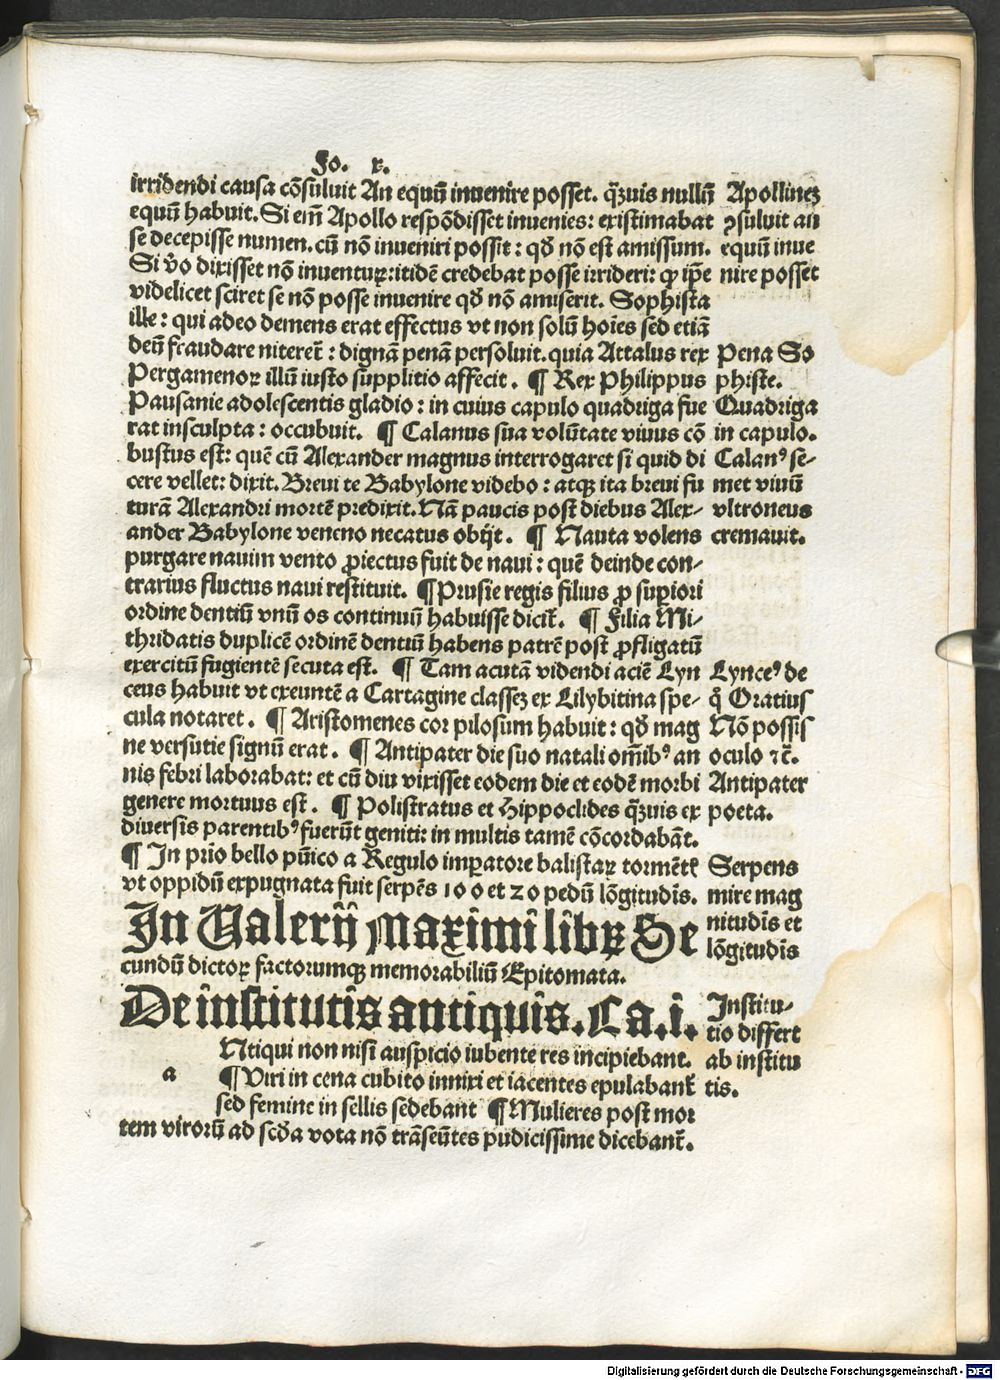 Fo. x.
irridendi causa cõsuluit An equũ inuenire posset. q̃zuis nullũ
equũ habuit. Si em̃ Apollo respõdisset inuenies: existimabat
se decepisse numen. cũ nõ inueniri possit: qð nõ est amissum.
Si v̊o dixisset nõ inuentuꝝ: itidẽ credebat posse irrideri: ꝙ ip̃e
videlicet sciret se nõ posse inuenire qð nõ amiserit. Sophista
ille: qui adeo demens erat effectus vt non solũ hoĩes sed etiã
deũ fraudare niteret̃: dignã penã persoluit. quia Attalus rex
Pergamenoꝝ illũ iusto supplitio affecit. ¶ Rex Philippus
Pausanie adolescentis gladio: in cuius capulo quadriga fue
rat insculpta: occubuit. ¶ Calanus sua volũtate viuus cõ
bustus est: quẽ cũ Alexander magnus interrogaret si quid di
cere vellet: dixit. Breui te Babylone videbo: atqꝫ ita breui fu
turã Alexandri mortẽ predixit. Nã paucis post diebus Alex-
ander Babylone veneno necatus obijt. ¶ Nauta volens
purgare nauim vento ꝓiectus fuit de naui: quẽ deinde con-
trarius fluctus naui restituit. ¶ Prusie regis filius ꝓ supꝑiori
ordine dentiũ vnũ os continuũ habuisse dicit̃. ¶ Filia Mi-
thridatis duplicẽ ordinẽ dentiũ habens patrẽ post ꝓfligatũ
exercitũ fugientẽ secuta est. ¶ Tam acutã videndi aciẽ Lyn
ceus habuit vt exeuntẽ a Cartagine classeꝫ ex Lilybitina spe-
cula notaret. ¶ Aristomenes cor pilosum habuit: qð mag
ne versutie signũ erat. ¶ Antipater die suo natali om̃ibꝰ an
nis febri laborabat: et cũ diu vixisset eodem die et eodẽ morbi
genere mortuus est. ¶ Polistratus et Hippoclides q̃zuis ex
diuersis parentibꝰ fuerũt geniti: in multis tamẽ cõcordabãt.
¶ In prio bello pũico a Regulo imꝑatore balistaꝝ tormẽtꝭ
vt oppidũ expugnata fuit serpẽs 100 et 20 pedũ lõgitudĩs.
In Ualerij Maximi libꝝ Se
cundũ dictoꝝ factorumqꝫ memorabiliũ Epitomata.
De institutis antiquis. Ca. i.
a
Ntiqui non nisi auspicio iubente res incipiebant.
¶ Viri in cena cubito innixi et iacentes epulabant̃
sed femine in sellis sedebant ¶ Mulieres post mor
tem virorũ ad scða vota nõ trãseũtes pudicissime dicebant̃.
Apollineꝫ
ꝯsuluit an
equũ inue
nire posset
Pena So
phiste.
Quadriga
in capulo.
Calanꝰ se-
met viuũ
vltroneus
cremauit.
Lynceꝰ de
q̃ Oratius
Nõ possis
oculo ⁊c̃.
Antipater
poeta.
Serpens
mire mag
nitudĩs et
lõgitudĩs
Institu-
tio differt
ab institu
tis.
Digitalisierung gefördert durch die Deutsche Forschungsgemeinschaft - DFG